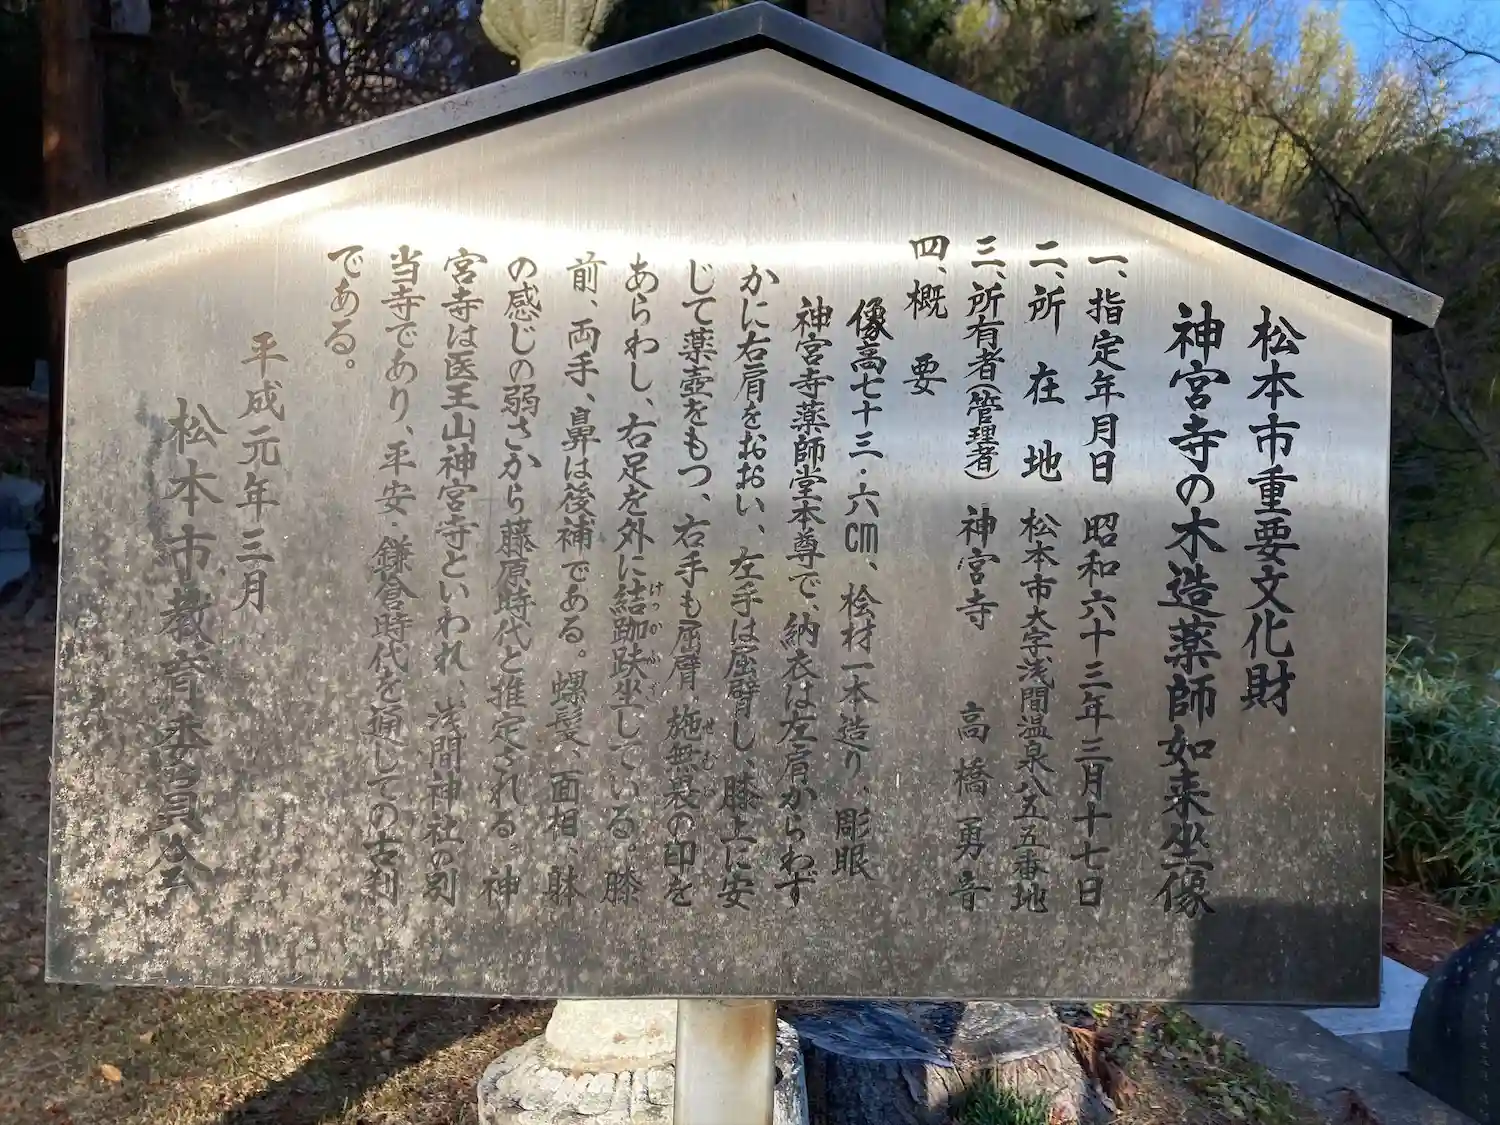 松本市重要文化財
神宮寺の木造薬師如来坐像
一、指定年月日 昭和六十三年三月十七日
二、所在地 松本市大字浅間温泉八五五番地
三、所有者(管理者) 神宮寺 高橋勇音
四、概要
像高七十三・六cm、桧材一本造り、彫眼
神宮寺薬師堂本尊で、納衣は左肩からわず
かに右肩をおおい、左手は屈臂し、膝上に安
じて薬壺をもつ、右手も屈臂 施無畏の印を
あらわし、右足を外に結跏趺坐している。膝
前、両手、鼻は後補である。螺髪、面相、躰
の感じの弱さから藤原時代と推定される。神
宮寺は医王山神宮寺といわれ、浅間神社の別
当寺であり、平安・鎌倉時代を通しての古刹
である。
平成元年三月
松本市教育委員会